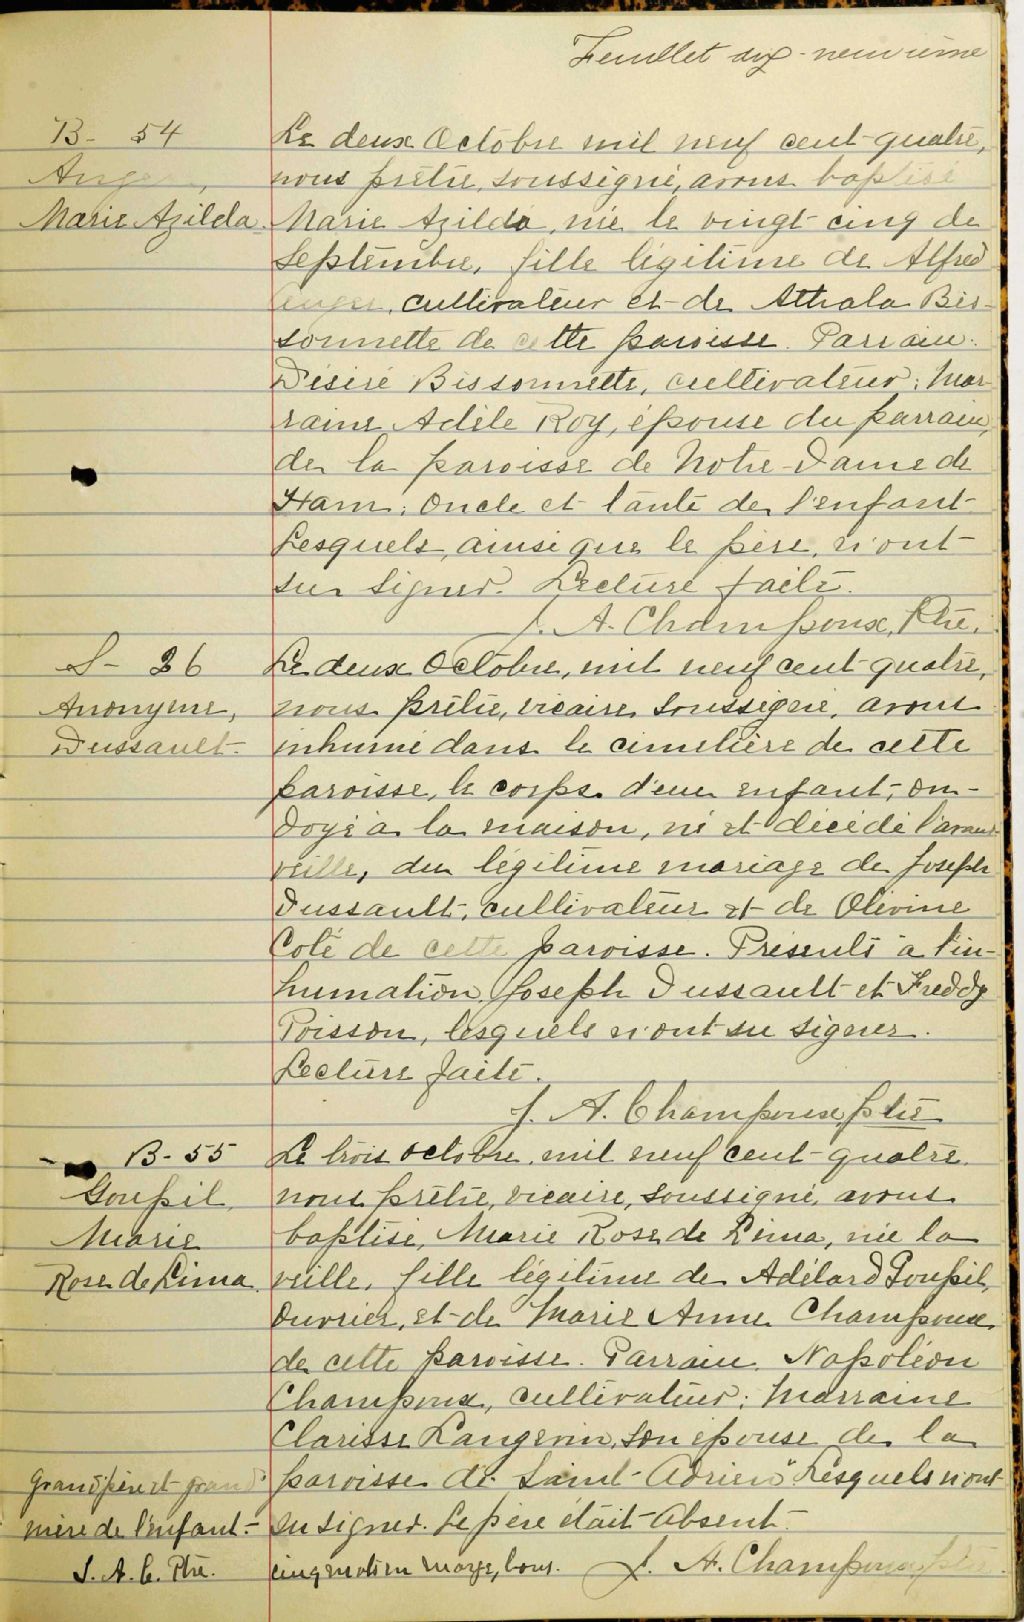 Feuillet dix-neuvième
B- 54
Auger,
Marie Azilda.
Le deux Octobre mil neuf cent quatre,
nous prêtre, soussigné, avons baptisé
Marie Azilda, née le vingt-cinq de
Septembre, fille légitime de Alfred
Auger, cultivateur et de Attrala Bis-
sonnette de cette paroisse. Parrain:
Désiré Bissonnette, cultivateur; Mar-
raine Adèle Roy, épouse du parrain,
de la paroisse de Notre-Dame de
Ham; Oncle et tante de l'enfant
Lesquels, ainsi que le père, n'ont
su signer. Lecture faite.
J. A. Champoux, Ptre.
S- 26
Anonyme,
Dussault-
Le deux Octobre, mil neuf cent quatre,
nous prêtre, vicaire, soussigné, avons
inhumé dans le cimetière de cette
paroisse, le corps d'un enfant, on-
doyé à la maison, né et décédé l'avant
veille, du légitime mariage de Joseph
Dussault, cultivateur et de Olivine
Coté de cette paroisse. Présents à l'in-
humation, Joseph Dussault et Freddy
Poisson, lesquels n'ont su signer.
Lecture faite.
J. A. Champoux, ptre
B- 55
Goupil,
Marie
Rose de Lima.
Le trois octobre, mil neuf cent quatre.
nous prêtre, vicaire, soussigné, avons
baptisé, Marie Rose de Lima, née la
veille, fille légitime de Adélard Goupil,
Ouvrier, et de Marie Anne Champoux
de cette paroisse. Parrain, Napoléon
Champoux, cultivateur; Marraine
Clarisse Langevin, son épouse de la
paroisse de Saint-Adrien" Lesquels n'ont
su signer. Le père était absent.
Grand'père et grand'
mère de l'enfant.-
J. A. C. Ptre.
cinq mots en marge, bons. J. A. Champoux, ptre